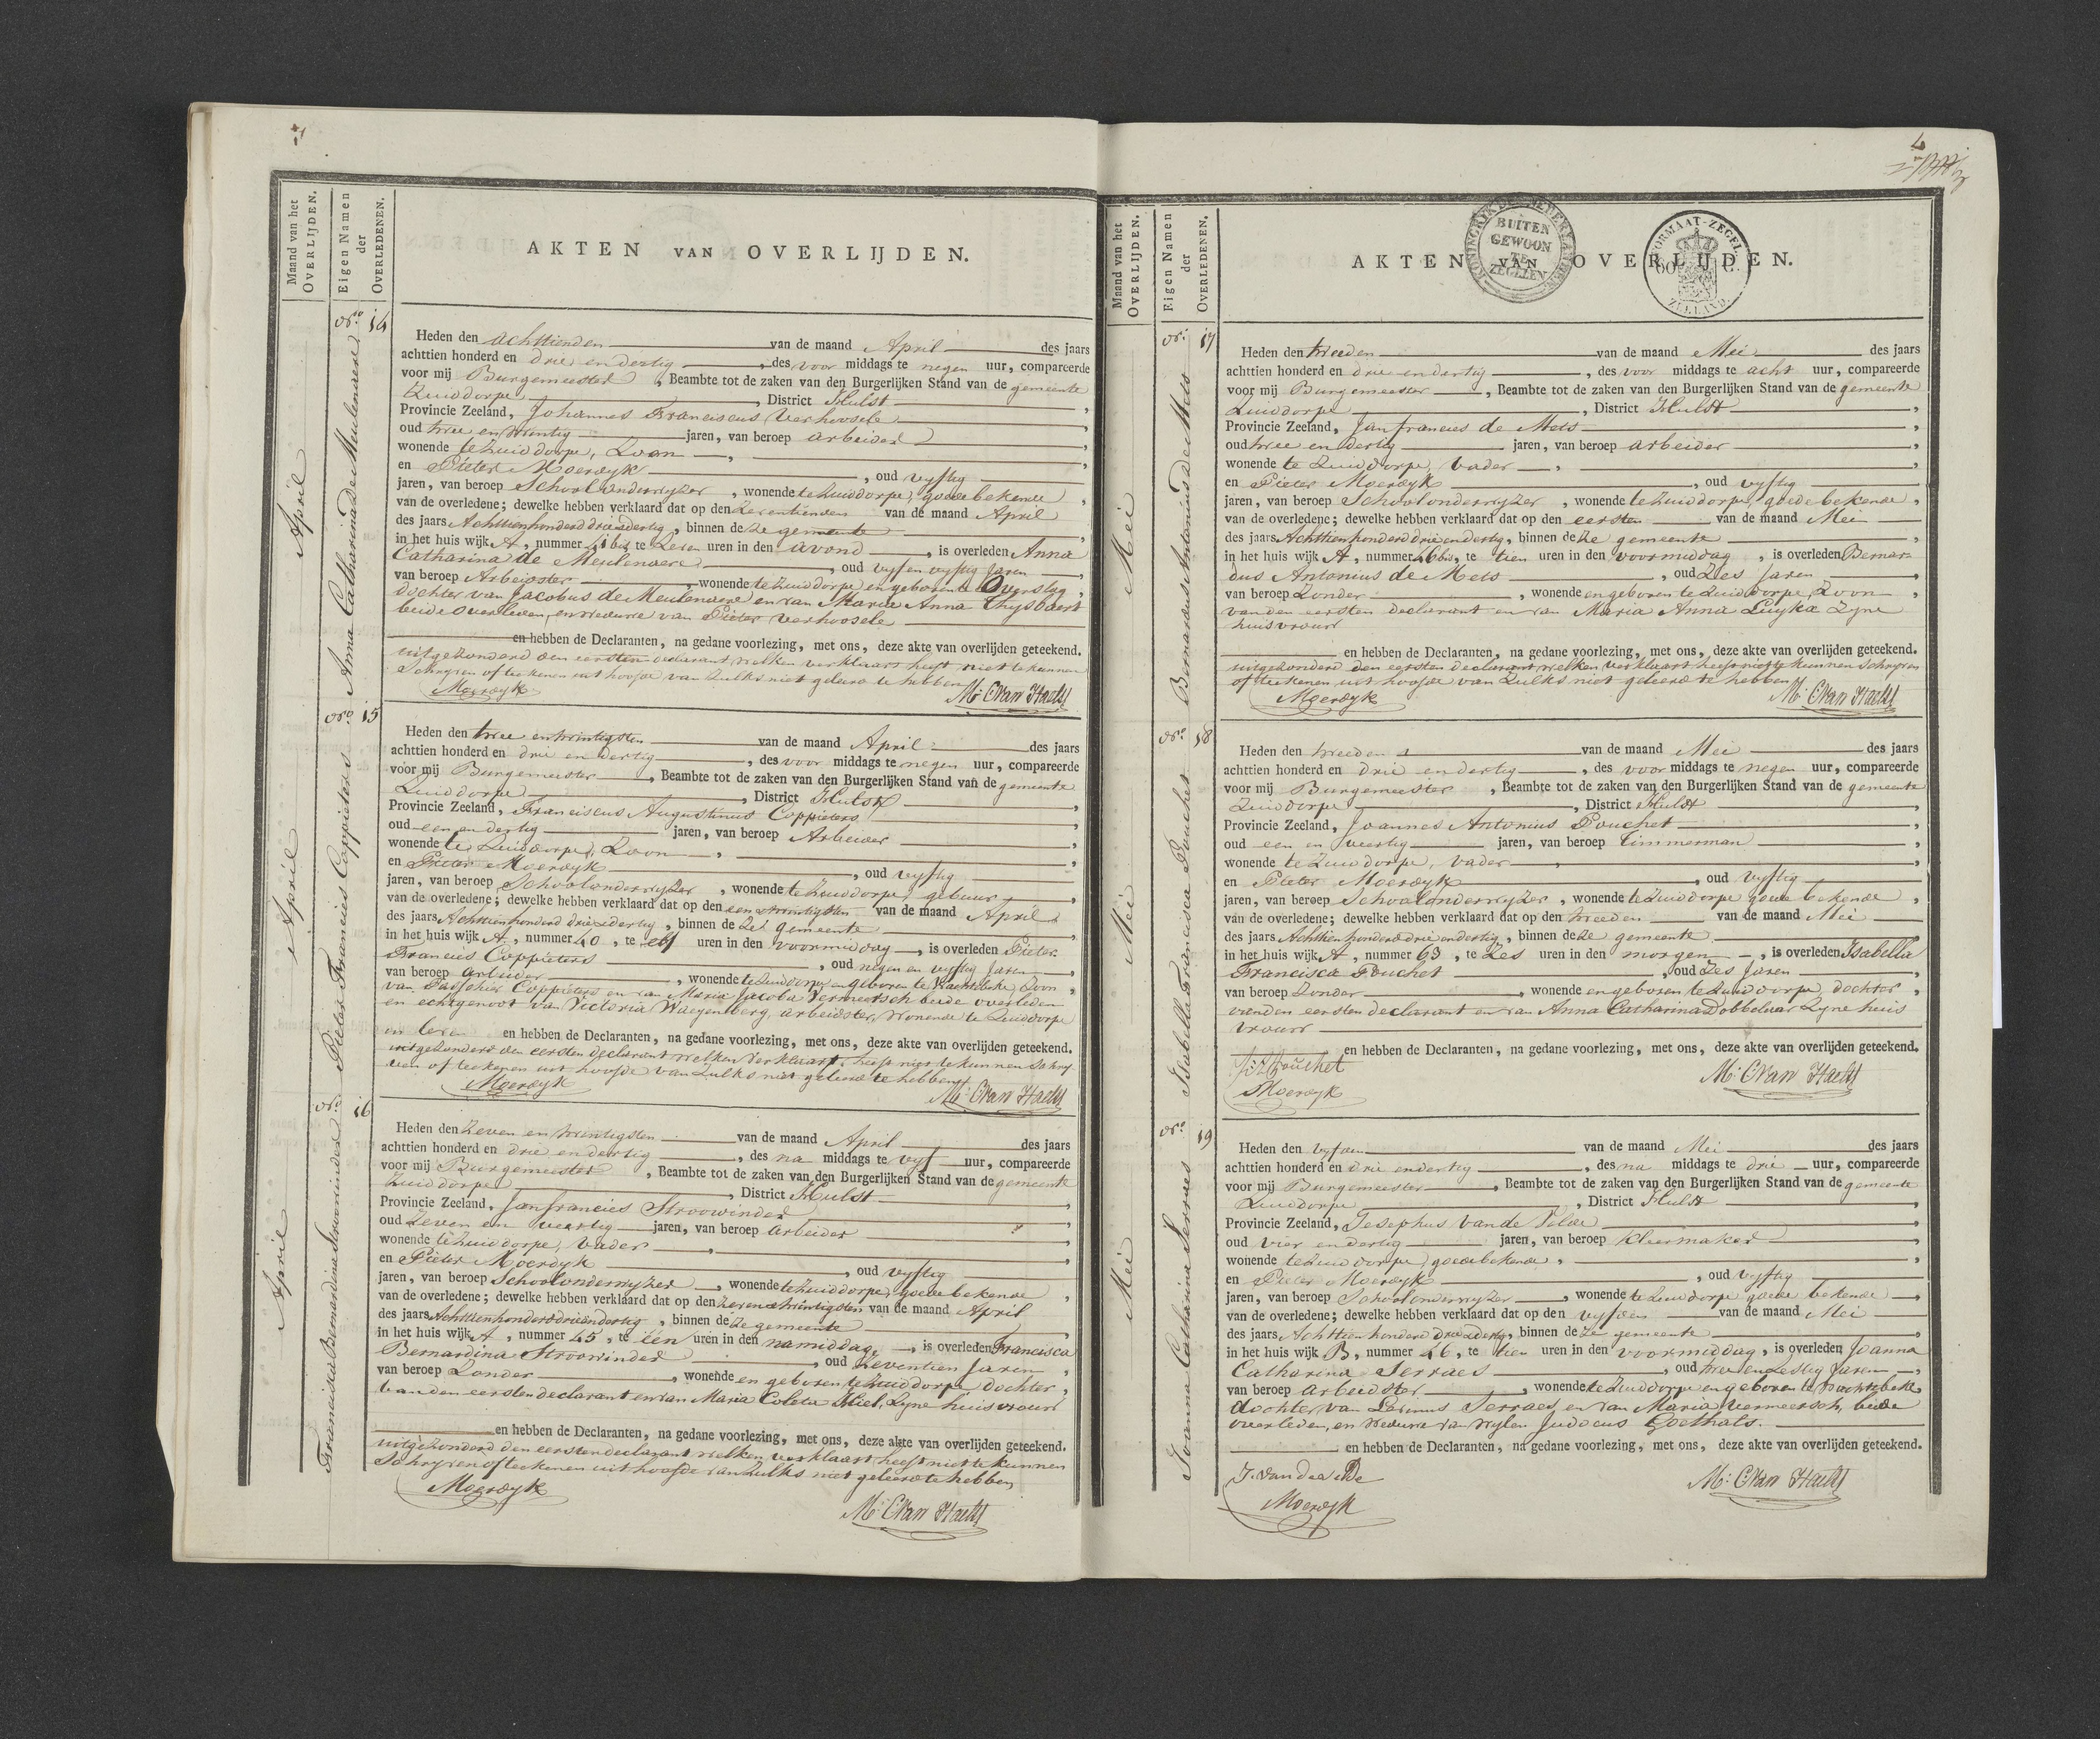 AKTEN VAN OVERLIJDEN.
Maand van het OVERLIJDEN.
Eigen Namen der OVERLEDENEN.
April
Nr. 14
Anna Catharina de Meulenaere
Heden den achttienden van de maand April des jaars
achttien honderd en drie en dertig, des voor middags te negen uur, compareerde
voor mij Burgemeester, Beambte tot de zaken van den Burgerlijken Stand van de gemeente
Zuiddorpe, District Hulst,
Provincie Zeeland, Johannes Franciscus Verhoosele,
oud twee en twintig jaren, van beroep arbeider,
wonende te Zuiddorpe, Zoon,
en Pieter Moerdyk, oud vyftig
jaren, van beroep Schoolonderwyzer, wonende te Zuiddorpe, goede bekende,
van de overledene; dewelke hebben verklaard dat op den zeventienden van de maand April
des jaars Achttienhonderd drieendertig, binnen deze gemeente,
in het huis wijk A, nummer 41 bis te zeven uren in den avond, is overleden Anna
Catharina de Meulenaere, oud vyf en vyftig Jaren,
van beroep Arbeidster, wonende te Zuiddorpe en geboren te Overslag,
dochter van Jacobus de Meulenaere en van Maria Anna Thysbaert
beide overleden, en weduwe van Pieter Verhoosele
en hebben de Declaranten, na gedane voorlezing, met ons, deze akte van overlijden geteekend.
uitgezonderd den eersten declarant welken verklaart heeft niet te kunnen
Schryven of teekenen uit hoofde van zulks niet geleerd te hebben
Moerdyk M. C Van Haelst
April
Nro. 15
Pieter Francies Coppieters
Heden den twee en twintigsten van de maand April des jaars
achttien honderd en drie en dertig, des voor middags te negen uur, compareerde
voor mij Burgemeester, Beambte tot de zaken van den Burgerlijken Stand van de gemeente
Zuiddorpe, District Hulst,
Provincie Zeeland, Franciscus Augustinus Coppieters,
oud een en dertig jaren, van beroep Arbeider,
wonende te Zuiddorpe, Zoon,
en Pieter Moerdyk, oud vyftig
jaren, van beroep Schoolonderwyzer, wonende te Zuiddorpe, gebuur,
van de overledene; dewelke hebben verklaard dat op den een en twintigsten van de maand April
des jaars Achttienhonderd drieendertig, binnen deze gemeente,
in het huis wijk A, nummer 40, te elf uren in den voormiddag, is overleden Pieter
Francies Coppieters, oud negen en vyftig Jaren,
van beroep arbeider, wonende te Zuiddorpe en geboren te Wachtebeke, Zoon,
van Paschier Coppieters en van Maria Jacoba Vermeersch beide overleden
en echtgenoot van Victoria Waegenberg, arbeidster, wonende te Zuiddorpe
in leven en hebben de Declaranten, na gedane voorlezing, met ons, deze akte van overlijden geteekend.
uitgezonderd den eersten declarant welken verklaart heeft niet te kunnen Schry
ven of teekenen uit hoofde van zulks niet geleerd te hebben
Moerdyk M. C Van Haelst
April
Nro. 16
Francisca Bernardina Stroowinder
Heden den Zeven en twintigsten van de maand April des jaars
achttien honderd en drie en dertig, des na middags te vyf uur, compareerde
voor mij Burgemeester, Beambte tot de zaken van den Burgerlijken Stand van de gemeente
Zuiddorpe, District Hulst,
Provincie Zeeland, Jan francies Stroowinder,
oud Zeven en veertig jaren, van beroep arbeider,
wonende te Zuiddorpe, Vader,
en Pieter Moerdyk, oud vyftig
jaren, van beroep Schoolonderwyzer, wonende te Zuiddorpe, goede bekende,
van de overledene; dewelke hebben verklaard dat op den zeven en twintigsten van de maand April
des jaars Achttienhonderd drieendertig, binnen deze gemeente,
in het huis wijk A, nummer 45, te een uren in den namiddag, is overleden Francisca
Bernardina Stroowinder, oud Zeventien Jaren,
van beroep Zonder, wonende en geboren te Zuiddorpe, Dochter,
van den eersten declarant en van Maria Coleta Hiel, Zyne huisvrouw
en hebben de Declaranten, na gedane voorlezing, met ons, deze akte van overlijden geteekend.
uitgezonderd den eersten declarant welken verklaart heeft niet te kunnen
Schryven of teekenen uit hoofde van zulks niet geleerd te hebben
Moerdyk
M. C Van Haelst
KONINGRYK DER NEDERLANDEN BUITEN GEWOON TE ZEGELEN
FORMAAT-ZEGEL 60 C. ZEELAND.
AKTEN VAN OVERLIJDEN.
Maand van het OVERLIJDEN.
Eigen Namen der OVERLEDENEN.
Mei
Nr. 17
Bernardus Antonius de Mets
Heden den tweeden van de maand Mei des jaars
achttien honderd en drie en dertig, des voor middags te acht uur, compareerde
voor mij Burgemeester, Beambte tot de zaken van den Burgerlijken Stand van de gemeente
Zuiddorpe, District Hulst,
Provincie Zeeland, Jan francies de Mets,
oud twee en dertig jaren, van beroep arbeider,
wonende te Zuiddorpe, Vader,
en Pieter Moerdyk, oud vyftig
jaren, van beroep Schoolonderwyzer, wonende te Zuiddorpe, goede bekende,
van de overledene; dewelke hebben verklaard dat op den eersten van de maand Mei
des jaars Achttienhonderd drieendertig, binnen deze gemeente,
in het huis wijk A, nummer 46 bis, te tien uren in den voormiddag, is overleden Bernar=
dus Antonius de Mets, oud Zes Jaren,
van beroep Zonder, wonende en geboren te Zuiddorpe, Zoon,
van den eersten declarant en van Maria Anna Luykx Zyne
huisvrouw
en hebben de Declaranten, na gedane voorlezing, met ons, deze akte van overlijden geteekend.
uitgezonderd den eersten declarant welken verklaart heeft niet te kunnen Schryven
of teekenen uit hoofde van zulks niet geleerd te hebben
Moerdyk M. C Van Haelst
Mei
Nro. 18
Isabella Francisca Pouchet
Heden den tweeden van de maand Mei des jaars
achttien honderd en drie en dertig, des voor middags te negen uur, compareerde
voor mij Burgemeester, Beambte tot de zaken van den Burgerlijken Stand van de gemeente
Zuiddorpe, District Hulst,
Provincie Zeeland, Joannes Antonius Pouchet,
oud een en veertig jaren, van beroep timmerman,
wonende te Zuiddorpe, Vader,
en Pieter Moerdyk, oud vyftig
jaren, van beroep Schoolonderwyzer, wonende te Zuiddorpe goede bekende,
van de overledene; dewelke hebben verklaard dat op den tweeden van de maand Mei
des jaars Achttienhonderd drieendertig, binnen deze gemeente,
in het huis wijk A, nummer 63, te Zes uren in den morgen, is overleden Isabella
Francisca Pouchet, oud Zes Jaren,
van beroep Zonder, wonende en geboren te Zuiddorpe, dochter,
van den eersten declarant en van Anna Catharina Dobbelaar Zyne huis
vrouw
en hebben de Declaranten, na gedane voorlezing, met ons, deze akte van overlijden geteekend.
J: A Pouchet M. C Van Haelst
Moerdyk
Mei
Nro. 19
Joanna Catharina Serraes
Heden den vyfden van de maand Mei des jaars
achttien honderd en drie en dertig, des na middags te drie uur, compareerde
voor mij Burgemeester, Beambte tot de zaken van den Burgerlijken Stand van de gemeente
Zuiddorpe, District Hulst,
Provincie Zeeland, Josephus van de Velde,
oud vier en dertig jaren, van beroep kleermaker,
wonende te Zuiddorpe, goede bekende,
en Pieter Moerdyk, oud vyftig
jaren, van beroep Schoolonderwyzer, wonende te Zuiddorpe goede bekende,
van de overledene; dewelke hebben verklaard dat op den vyfden van de maand Mei
des jaars Achttien honderd drieendertig, binnen deze gemeente,
in het huis wijk B, nummer 26, te tien uren in den voormiddag, is overleden Joanna
Catharina Serraes, oud twee en zestig Jaren,
van beroep arbeidster, wonende te Zuiddorpe en geboren te Wachtebeke,
dochter van Livinus Serraes en van Maria Vermeersch, beide
overleden, en weduwe van wylen Judocus Goethals.
en hebben de Declaranten, na gedane voorlezing, met ons, deze akte van overlijden geteekend.
J. van de velde M. C Van Haelst
Moerdyk